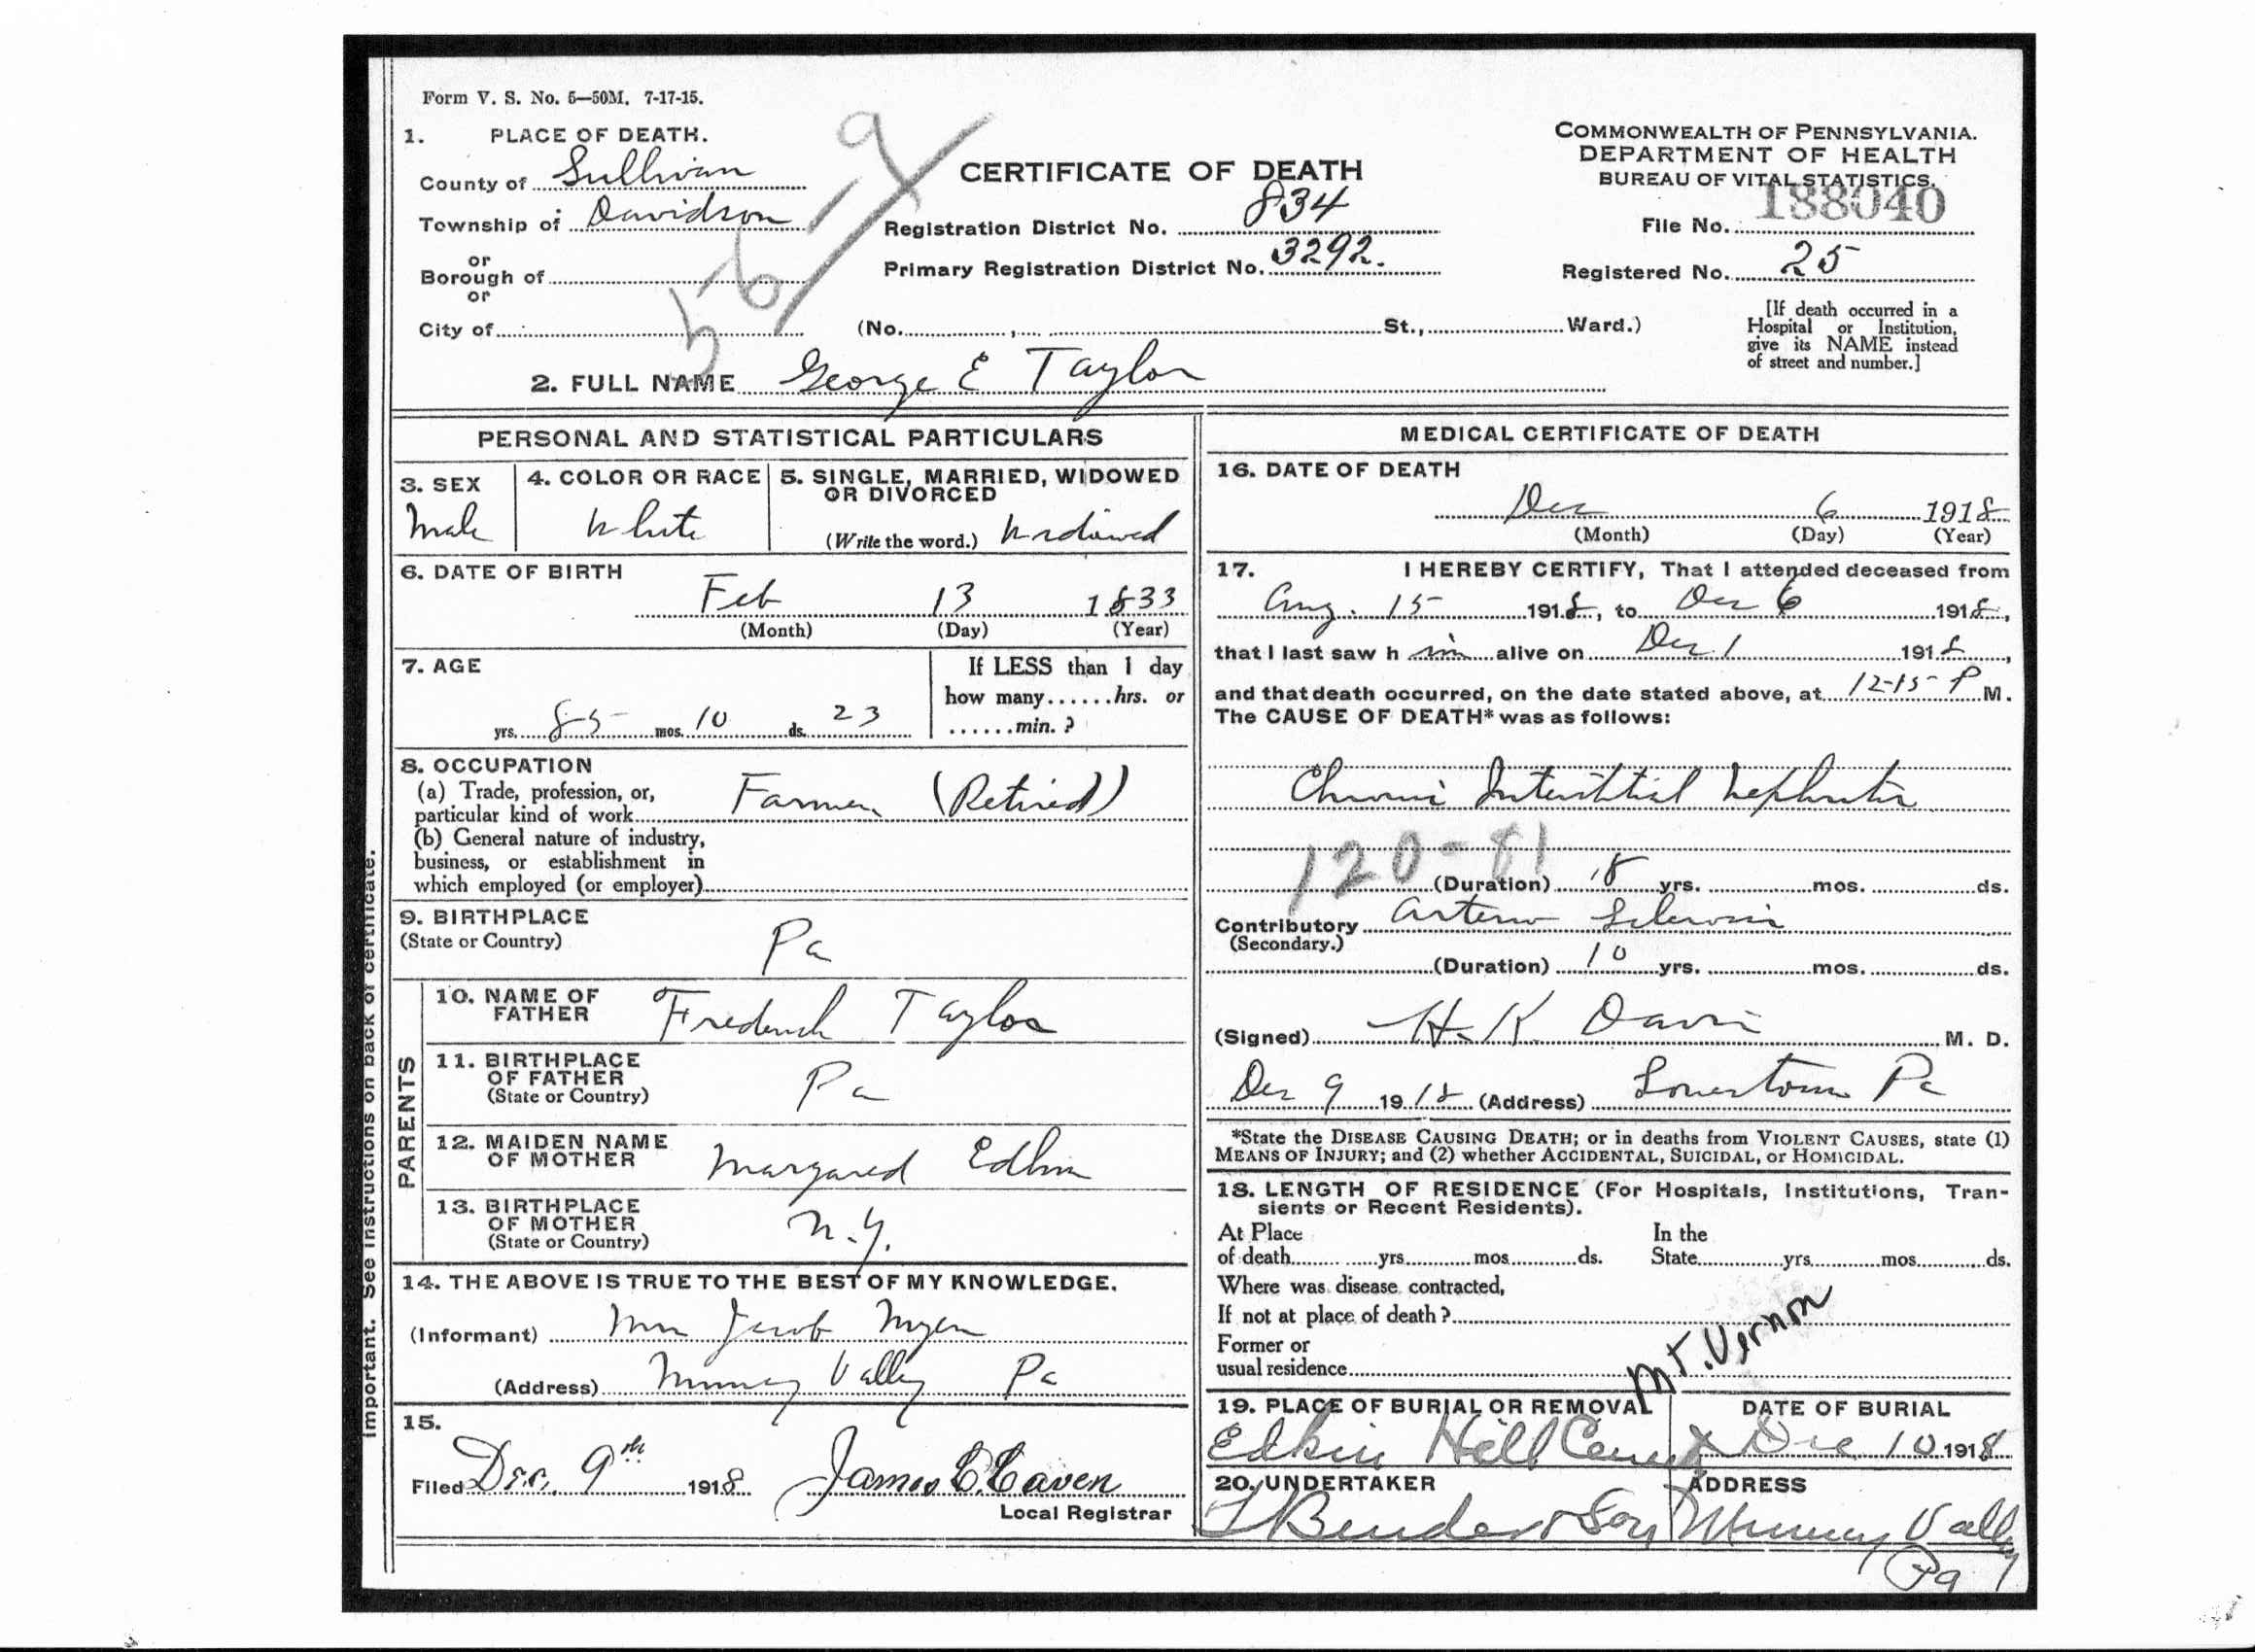 Form V. S. No. 5—50M. 7-17-15.
1. PLACE OF DEATH.
County of Sullivan
Township of Davidson
or
Borough of
or
City of
569
CERTIFICATE OF DEATH
Registration District No. 834
Primary Registration District No. 3292.
(No. , St., Ward.)
COMMONWEALTH OF PENNSYLVANIA.
DEPARTMENT OF HEALTH
BUREAU OF VITAL STATISTICS.
188040
File No.
Registered No. 25
[If death occurred in a
Hospital or Institution,
give its NAME instead
of street and number.]
2. FULL NAME George E Taylor
PERSONAL AND STATISTICAL PARTICULARS
3. SEX
Male
4. COLOR OR RACE
White
5. SINGLE, MARRIED, WIDOWED
OR DIVORCED
(Write the word.) Widowed
6. DATE OF BIRTH
Feb 13 1833
(Month) (Day) (Year)
7. AGE
yrs. 85 mos. 10 ds. 23
If LESS than 1 day
how many......hrs. or
......min. ?
8. OCCUPATION
(a) Trade, profession, or,
particular kind of work Farmer (Retired)
(b) General nature of industry,
business, or establishment in
which employed (or employer)
9. BIRTHPLACE
(State or Country)
Pa
PARENTS
10. NAME OF
FATHER
Frederick Taylor
11. BIRTHPLACE
OF FATHER
(State or Country)
Pa
12. MAIDEN NAME
OF MOTHER
Margared
13. BIRTHPLACE
OF MOTHER
(State or Country)
N.Y.
14. THE ABOVE IS TRUE TO THE BEST OF MY KNOWLEDGE.
(Informant) Jacob Myers
(Address) Muncy Valley Pa
15.
Filed Dec. 9th 1918 James C. Caven
Local Registrar
Important. See instructions on back of certificate.
MEDICAL CERTIFICATE OF DEATH
16. DATE OF DEATH
Dec 6 1918
(Month) (Day) (Year)
17. I HEREBY CERTIFY, That I attended deceased from
Aug. 15 1918, to Dec 6 1918,
that I last saw h im alive on Dec 1 1918,
and that death occurred, on the date stated above, at 12-15 P M.
The CAUSE OF DEATH* was as follows:
Chronic Interstitial Nephritis
120-81
(Duration) 18 yrs. mos. ds.
Contributory Arterio Sclerosis
(Secondary.)
(Duration) 10 yrs. mos. ds.
(Signed) H. K. Davis M. D.
Dec 9 1918 (Address) Pa
*State the DISEASE CAUSING DEATH; or in deaths from VIOLENT CAUSES, state (1)
MEANS OF INJURY; and (2) whether ACCIDENTAL, SUICIDAL, or HOMICIDAL.
18. LENGTH OF RESIDENCE (For Hospitals, Institutions, Tran-
sients or Recent Residents).
At Place
of death yrs. mos. ds.
In the
State yrs. mos. ds.
Where was disease contracted,
If not at place of death?
Former or
usual residence
Mt. Vernon
19. PLACE OF BURIAL OR REMOVAL
Edkin Hill Cemet
DATE OF BURIAL
Dec 10 1918
20. UNDERTAKER
Bender & Son
ADDRESS
Muncy Valley
Pa